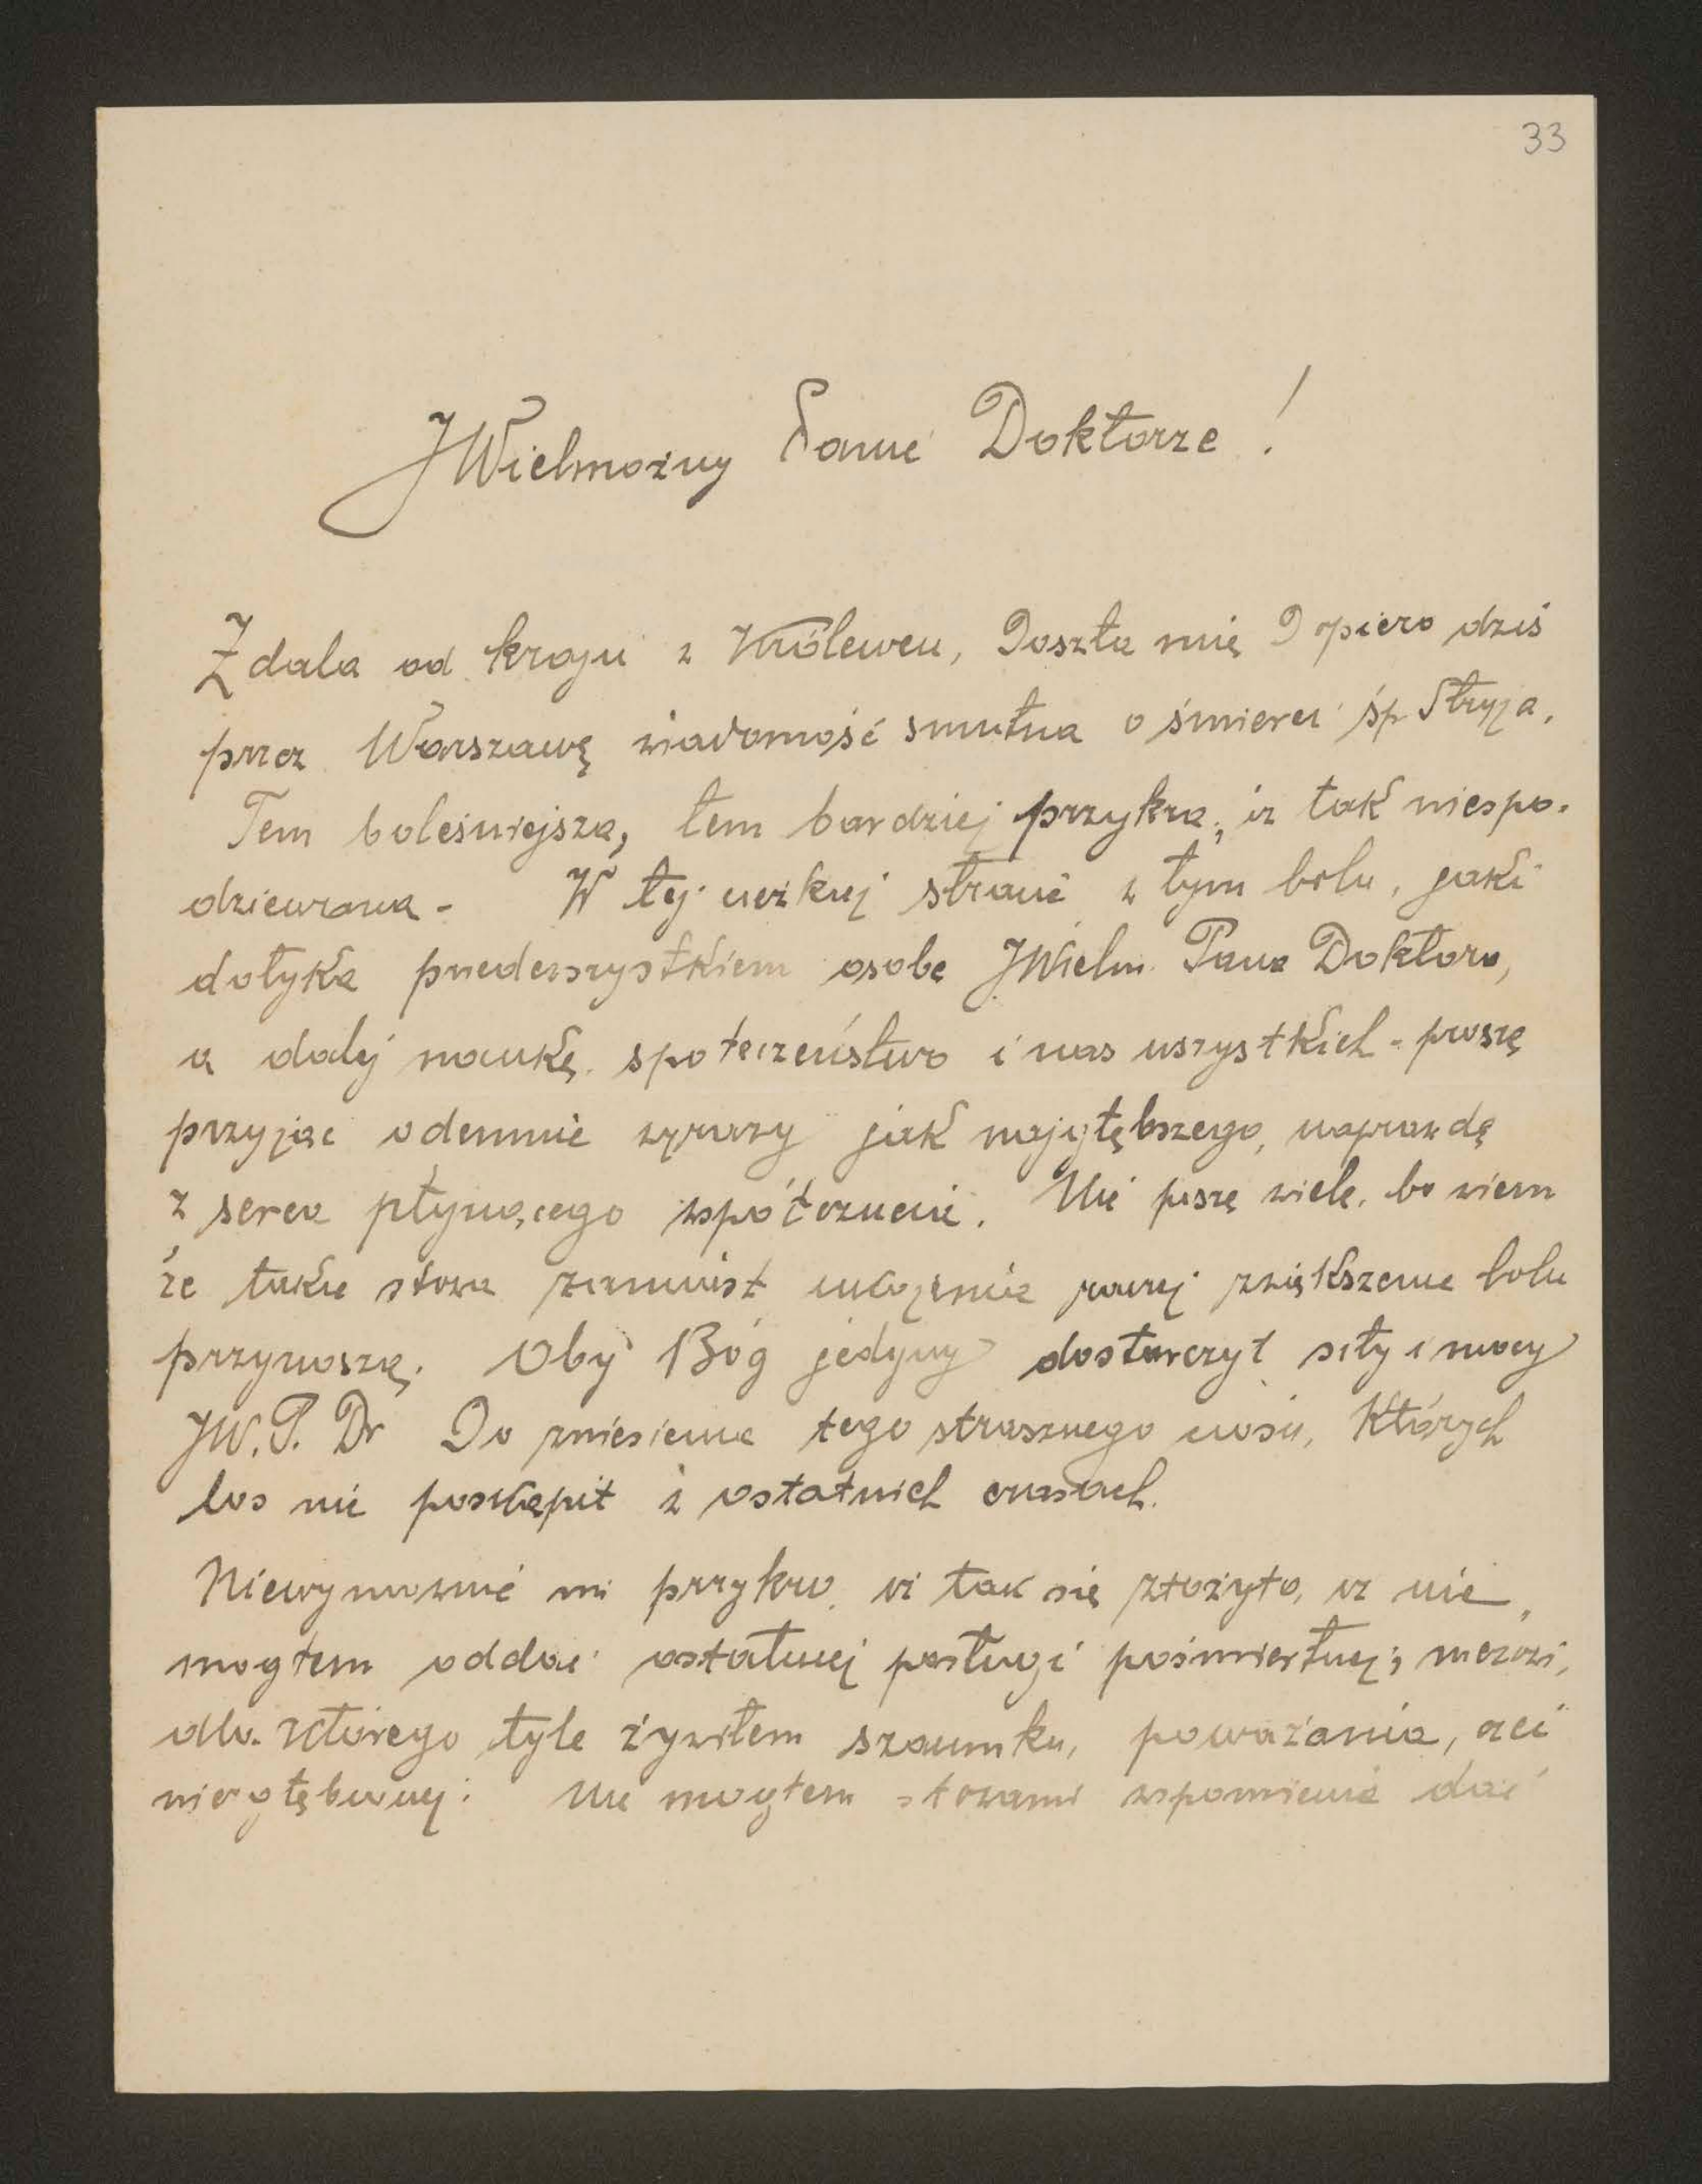 33
JWielmożny Panie Doktorze!
Zdala od kraju w Królewcu, doszła mię dopiero dziś
przez Warszawę wiadomość smutna o śmierci śp Stryja.
Tem boleśniejsza, tem bardziej przykra, iż tak niespo-
dziewana - W tej ciężkiej stracie w tym bolu, jaki
dotyka przedewszystkiem osobę JWielm. Pana Doktora,
a dalej naukę, społeczeństwo i nas wszystkich - proszę
przyjąć odemnie wyrazy jak najgłębszego, naprawdę
z serca płynącego współczucia. Nie piszę wiele, bo wiem
że takie słowa zamiast ukojenia raczej zwiększenie bolu
przynoszą. Oby Bóg jedyny dostarczył siły i mocy
JW.P. Dr Do zniesienia tego strasznego ciosu, których
los nie poskąpił w ostatnich czasach.
Niewymownie mi przykro, iż tak się złożyło, iż nie
mogłem oddać ostatniej posługi pośmiertnej mężowi,
dla którego tyle żywiłem szacunku, poważania, czci
niezgłębionej. Nie mogłem słowami wspomienia dać